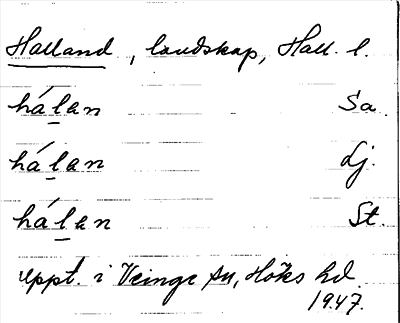 Halland, landskap, Hall. l.
hálan Sa.
hálan Lj.
hálan St.
Uppt. i Veinge sn, Höks hd
1947.